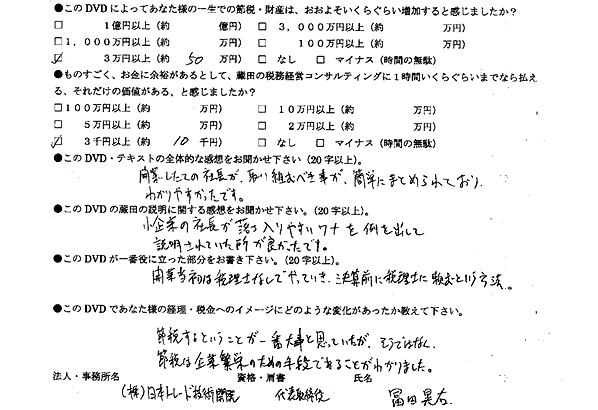 ●このDVDによってあなた様の一生での節税・財産は、おおよそいくらぐらい増加すると感じましたか？
□ 1億円以上（約 億円） □ 3,000万円以上（約 万円）
□ 1,000万円以上（約 万円） □ 100万円以上（約 万円）
☑ 3万円以上（約 50 万円） □ なし □ マイナス（時間の無駄）
●ものすごく、お金に余裕があるとして、蔵田の税務経営コンサルティングに1時間いくらぐらいまでなら払え
る、それだけの価値がある、と感じましたか？
□ 100万円以上（約 万円） □ 10万円以上（約 万円）
□ 5万円以上（約 万円） □ 2万円以上（約 万円）
☑ 3千円以上（約 10 千円） □ なし □ マイナス（時間の無駄）
●このDVD・テキストの全体的な感想をお聞かせ下さい（20字以上）。
開業したての社長が、取り組むべき事が、簡単にまとめられており、
わかりやすかったです。
●このDVDの蔵田の説明に関する感想をお聞かせ下さい。（20字以上）。
小企業の社長が落ち入りやすいワナを例を出して
説明されていた所が良かったです。
●このDVDが一番役に立った部分をお書き下さい。（20字以上）。
開業当初は税理士なしでやっていき、決算前に税理士に頼むという方法。
●このDVDであなた様の経理・税金へのイメージにどのような変化があったか教えて下さい。
節税するということが一番大事と思っていたが、そうではなく、
節税は企業繁栄のための手段であることがわかりました。
法人・事務所名 資格・肩書 氏名
（株）日本トレード技術開院 代表取締役 冨田晃右